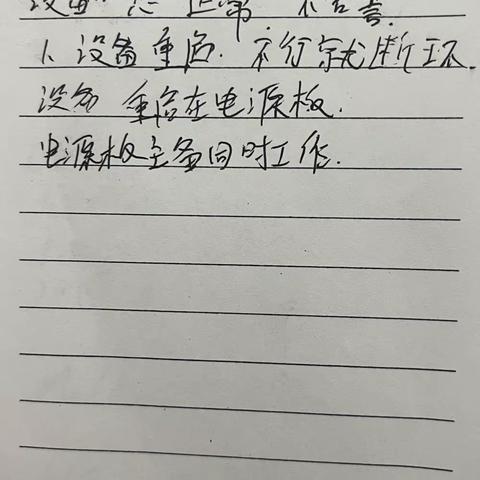 设备 正常 不告警.
1、设备重启. 不行就断环.
设备 重启在电源板.
电源板主备同时工作.